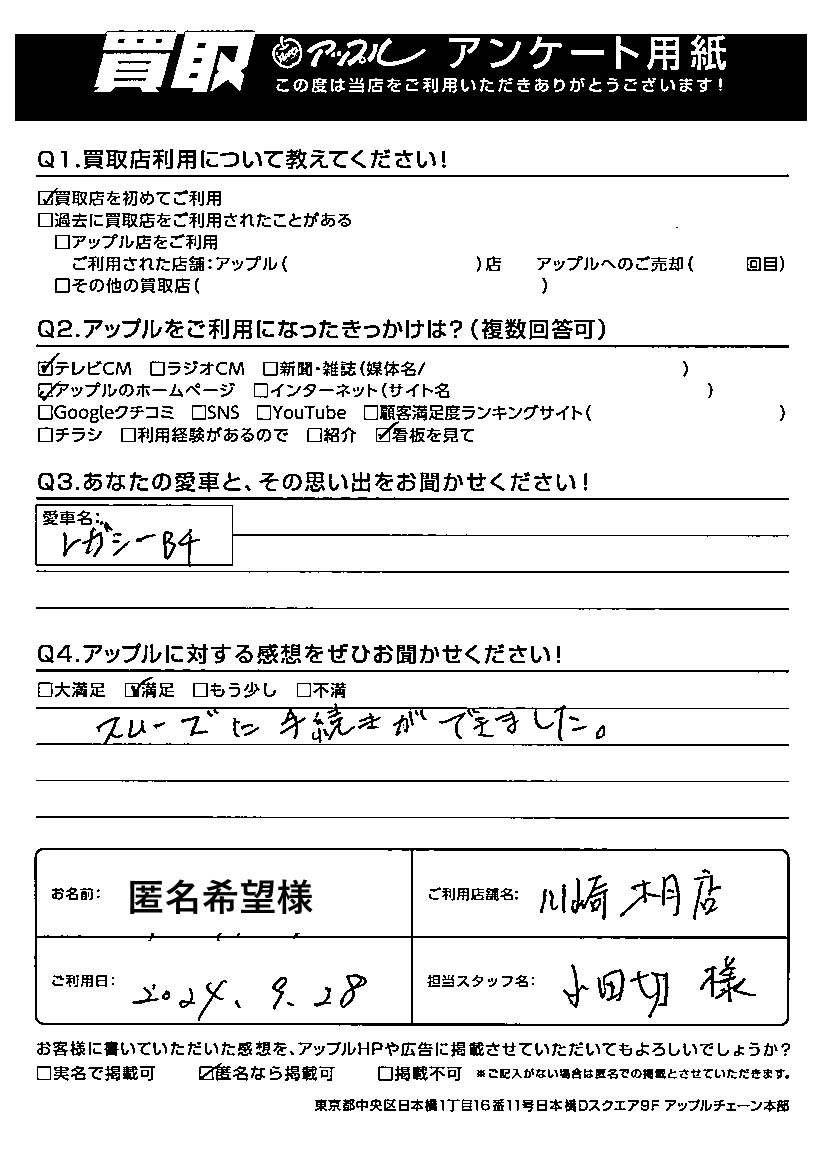 買取 アップル アンケート用紙
この度は当店をご利用いただきありがとうございます!
Q1.買取店利用について教えてください!
☑買取店を初めてご利用
□過去に買取店をご利用されたことがある
□アップル店をご利用
ご利用された店舗:アップル( )店 アップルへのご売却( 回目)
□その他の買取店( )
Q2.アップルをご利用になったきっかけは?(複数回答可)
☑テレビCM □ラジオCM □新聞・雑誌(媒体名/ )
☑アップルのホームページ □インターネット(サイト名 )
□Googleクチコミ □SNS □YouTube □顧客満足度ランキングサイト( )
□チラシ □利用経験があるので □紹介 ☑看板を見て
Q3.あなたの愛車と、その思い出をお聞かせください!
愛車名:
レガシーB4
Q4.アップルに対する感想をぜひお聞かせください!
□大満足 ☑満足 □もう少し □不満
スムーズに手続きができました。
お名前: 匿名希望様 ご利用店舗名: 川崎 店
ご利用日: 2024.9.28 担当スタッフ名: 小田切 様
お客様に書いていただいた感想を、アップルHPや広告に掲載させていただいてもよろしいでしょうか?
□実名で掲載可 ☑匿名なら掲載可 □掲載不可 ※ご記入がない場合は匿名での掲載とさせていただきます。
東京都中央区日本橋1丁目16番11号日本橋Dスクエア9F アップルチェーン本部